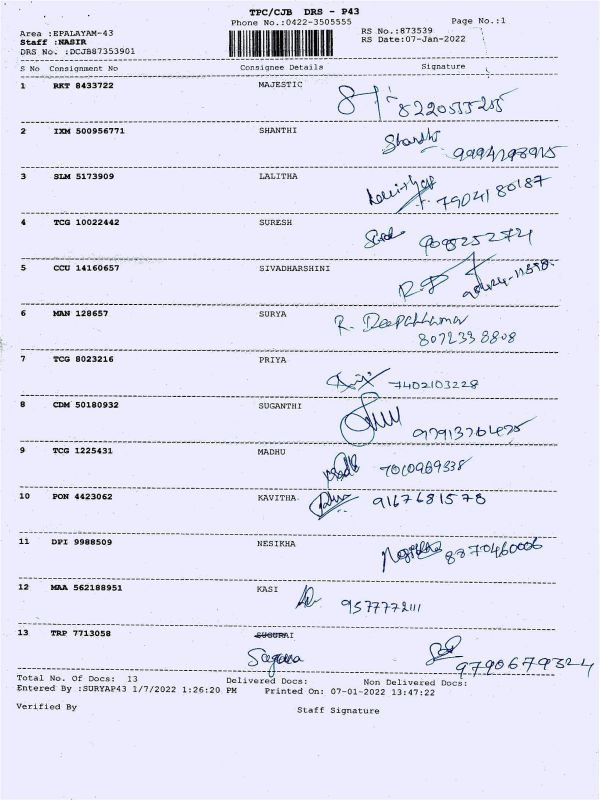 TPC/CJB DRS - P43
Phone No.:0422-3505555 Page No.:1
Area :EPALAYAM-43 RS No.:873539
Staff :NASIR RS Date:07-Jan-2022
DRS No. :DCJB87353901
S No Consignment No Consignee Details Signature
1 RKT 8433722 MAJESTIC
2 IXM 500956771 SHANTHI
Shanthi
3 SLM 5173909 LALITHA
7904180187
4 TCG 10022442 SURESH
9098252721
5 CCU 14160657 SIVADHARSHINI
6 MAN 128657 SURYA
R. Deepakkumar
8072338808
7 TCG 8023216 PRIYA
7402103228
8 CDM 50180932 SUGANTHI
9 TCG 1225431 MADHU
7010969338
10 PON 4423062 KAVITHA
9167681578
11 DPI 9988509 NESIKHA
8870460006
12 MAA 562188951 KASI
9577772111
13 TRP 7713058 SUGURAI
9790679324
Total No. Of Docs: 13 Delivered Docs: Non Delivered Docs:
Entered By :SURYAP43 1/7/2022 1:26:20 PM Printed On: 07-01-2022 13:47:22
Verified By Staff Signature